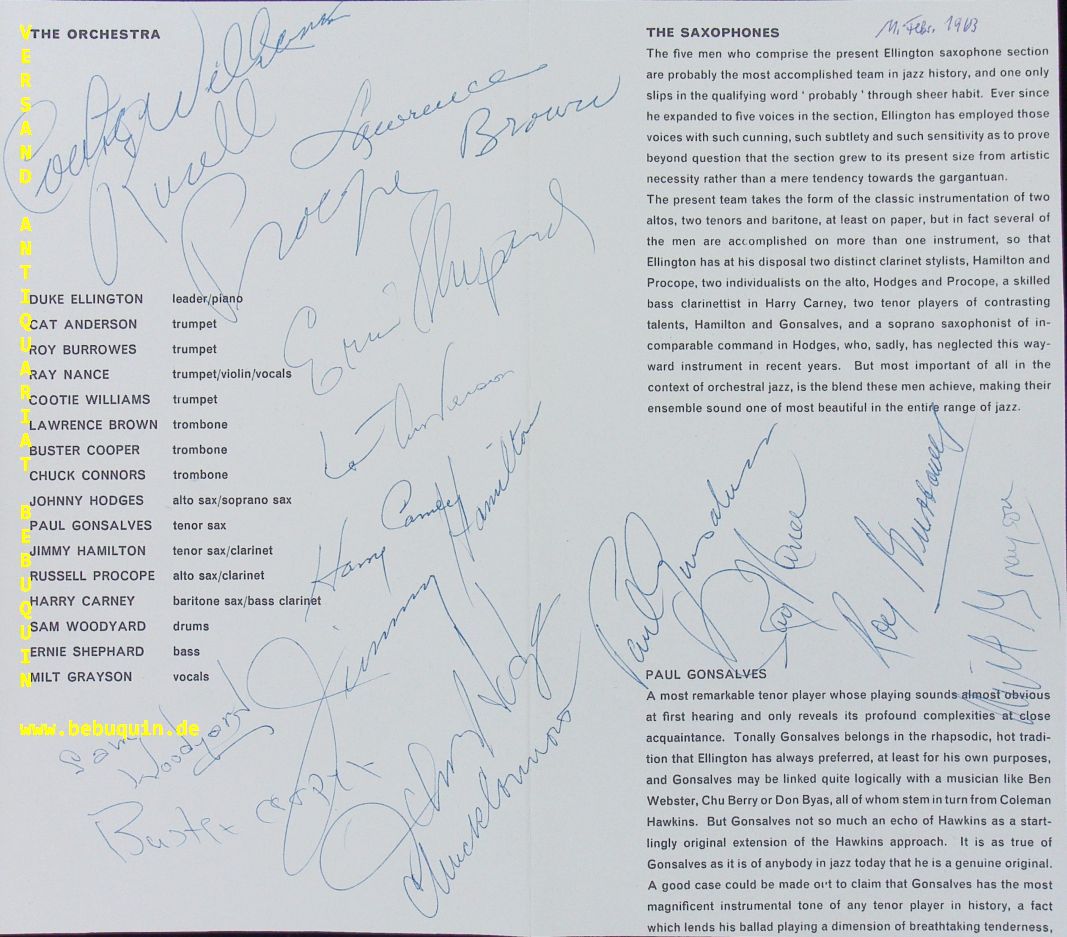 THE ORCHESTRA
Cootie Williams
Russell
Procope
Lawrence
Brown
Ernie Shepard
DUKE ELLINGTON leader/piano
CAT ANDERSON trumpet
ROY BURROWES trumpet
RAY NANCE trumpet/violin/vocals
COOTIE WILLIAMS trumpet
LAWRENCE BROWN trombone
BUSTER COOPER trombone
CHUCK CONNORS trombone
JOHNNY HODGES alto sax/soprano sax
PAUL GONSALVES tenor sax
JIMMY HAMILTON tenor sax/clarinet
RUSSELL PROCOPE alto sax/clarinet
HARRY CARNEY baritone sax/bass clarinet
SAM WOODYARD drums
ERNIE SHEPHARD bass
MILT GRAYSON vocals
Cat Anderson
Harry Carney
Jimmy Hamilton
Sam Woodyard
Buster Cooper
Johnny Hodges
Chuck Connors
VERSAND ANTIQUARIAT BEBUQUIN
www.bebuquin.de
11. Febr. 1963
THE SAXOPHONES
The five men who comprise the present Ellington saxophone section
are probably the most accomplished team in jazz history, and one only
slips in the qualifying word ' probably ' through sheer habit. Ever since
he expanded to five voices in the section, Ellington has employed those
voices with such cunning, such subtlety and such sensitivity as to prove
beyond question that the section grew to its present size from artistic
necessity rather than a mere tendency towards the gargantuan.
The present team takes the form of the classic instrumentation of two
altos, two tenors and baritone, at least on paper, but in fact several of
the men are accomplished on more than one instrument, so that
Ellington has at his disposal two distinct clarinet stylists, Hamilton and
Procope, two individualists on the alto, Hodges and Procope, a skilled
bass clarinettist in Harry Carney, two tenor players of contrasting
talents, Hamilton and Gonsalves, and a soprano saxophonist of in-
comparable command in Hodges, who, sadly, has neglected this way-
ward instrument in recent years. But most important of all in the
context of orchestral jazz, is the blend these men achieve, making their
ensemble sound one of most beautiful in the entire range of jazz.
Paul Gonsalves
Ray Nance
Roy Burrowes
Milt Grayson
PAUL GONSALVES
A most remarkable tenor player whose playing sounds almost obvious
at first hearing and only reveals its profound complexities at close
acquaintance. Tonally Gonsalves belongs in the rhapsodic, hot tradi-
tion that Ellington has always preferred, at least for his own purposes,
and Gonsalves may be linked quite logically with a musician like Ben
Webster, Chu Berry or Don Byas, all of whom stem in turn from Coleman
Hawkins. But Gonsalves not so much an echo of Hawkins as a start-
lingly original extension of the Hawkins approach. It is as true of
Gonsalves as it is of anybody in jazz today that he is a genuine original.
A good case could be made out to claim that Gonsalves has the most
magnificent instrumental tone of any tenor player in history, a fact
which lends his ballad playing a dimension of breathtaking tenderness,